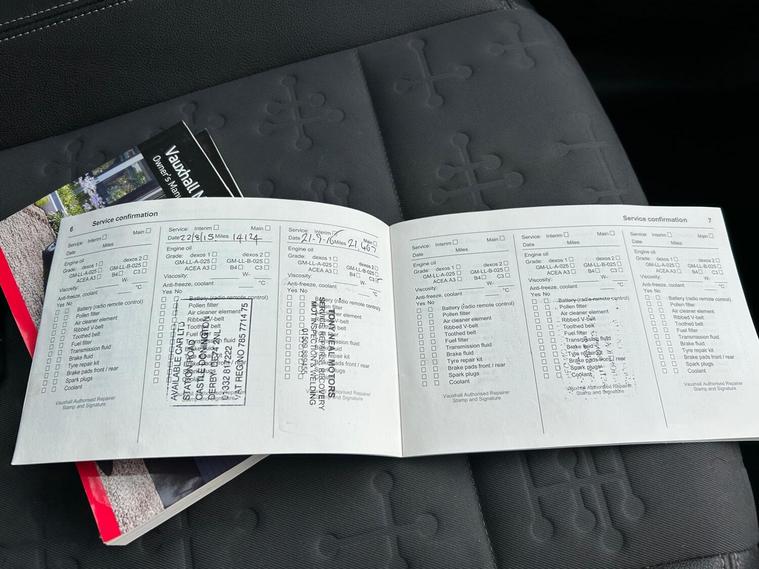 Vauxhall M
Owner's Manu
6 Service confirmation
Service: Interim ☐ Main ☐
Date Miles
Engine oil
Grade: dexos 1 ☐ dexos 2 ☐
GM-LL-A-025 ☐ GM-LL-B-025 ☐
ACEA A3 ☐ B4 ☐ C3 ☐
Viscosity: W-
Anti-freeze, coolant °C
Yes No
Battery (radio remote control)
Pollen filter
Air cleaner element
Ribbed V-belt
Toothed belt
Fuel filter
Transmission fluid
Brake fluid
Tyre repair kit
Brake pads front / rear
Spark plugs
Coolant
Vauxhall Authorised Repairer
Stamp and Signature
Service: Interim ☐ Main ☐
Date 22/8/15 Miles 14124
Engine oil
Grade: dexos 1 ☐ dexos 2 ☐
GM-LL-A-025 ☐ GM-LL-B-025 ☐
ACEA A3 ☐ B4 ☐ C3 ☐
Viscosity: W-
Anti-freeze, coolant °C
Yes No
Battery (radio remote control)
Pollen filter
AVAILABLE CAR LTD
STATION ROAD
CASTLE DONINGTON
DERBY DE74 2NL
01332 817222
VAT REG NO 785 7714 75
Service: Interim ☐ Main ☐
Date 21-9-16 Miles
Engine oil
Grade: dexos 1 ☐ dexos 2 ☐
GM-LL-A-025 ☐ GM-LL-B-025 ☐
ACEA A3 ☐ B4 ☐ C3 ☐
Viscosity: W-
Anti-freeze, coolant °C
Yes No
Battery (radio remote control)
TONY NEAL MOTORS
MOT INSPECTION & WELDING
Service confirmation 7
Service: Interim ☐ Main ☐
Date Miles
Engine oil
Grade: dexos 1 ☐ dexos 2 ☐
GM-LL-A-025 ☐ GM-LL-B-025 ☐
ACEA A3 ☐ B4 ☐ C3 ☐
Viscosity: W-
Anti-freeze, coolant °C
Yes No
Battery (radio remote control)
Pollen filter
Air cleaner element
Ribbed V-belt
Toothed belt
Fuel filter
Transmission fluid
Brake fluid
Tyre repair kit
Brake pads front / rear
Spark plugs
Coolant
Vauxhall Authorised Repairer
Stamp and Signature
Service: Interim ☐ Main ☐
Date Miles
Engine oil
Grade: dexos 1 ☐ dexos 2 ☐
GM-LL-A-025 ☐ GM-LL-B-025 ☐
ACEA A3 ☐ B4 ☐ C3 ☐
Viscosity: W-
Anti-freeze, coolant °C
Yes No
Battery (radio remote control)
Pollen filter
Air cleaner element
Ribbed V-belt
Toothed belt
Fuel filter
Transmission fluid
Brake fluid
Tyre repair kit
Brake pads front / rear
Spark plugs
Coolant
Vauxhall Authorised Repairer
Stamp and Signature
Service: Interim ☐ Main ☐
Date Miles
Engine oil
Grade: dexos 1 ☐ dexos 2 ☐
GM-LL-A-025 ☐ GM-LL-B-025 ☐
ACEA A3 ☐ B4 ☐ C3 ☐
Viscosity: W-
Anti-freeze, coolant °C
Yes No
Battery (radio remote control)
Pollen filter
Air cleaner element
Ribbed V-belt
Toothed belt
Fuel filter
Transmission fluid
Brake fluid
Tyre repair kit
Brake pads front / rear
Spark plugs
Coolant
Vauxhall Authorised Repairer
Stamp and Signature